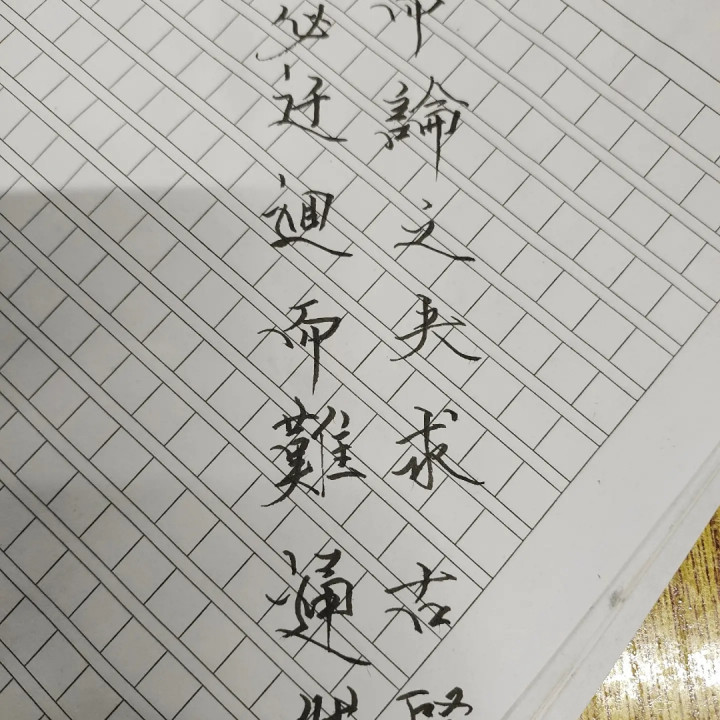 論之夫求古
必迂迴而難通